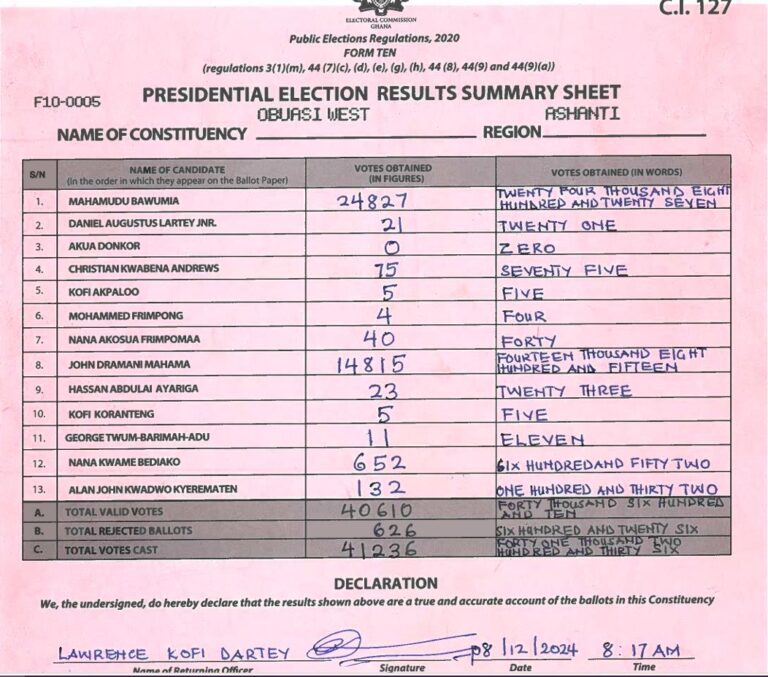 C.I. 127
ELECTORAL COMMISSION
GHANA
Public Elections Regulations, 2020
FORM TEN
(regulations 3(1)(m), 44 (7)(c), (d), (e), (g), (h), 44 (8), 44(9) and 44(9)(a))
F10-0005
PRESIDENTIAL ELECTION RESULTS SUMMARY SHEET
OBUASI WEST ASHANTI
NAME OF CONSTITUENCY REGION
S/N NAME OF CANDIDATE (In the order in which they appear on the Ballot Paper) VOTES OBTAINED (IN FIGURES) VOTES OBTAINED (IN WORDS)
1. MAHAMUDU BAWUMIA 24827 TWENTY FOUR THOUSAND EIGHT HUNDRED AND TWENTY SEVEN
2. DANIEL AUGUSTUS LARTEY JNR. 21 TWENTY ONE
3. AKUA DONKOR 0 ZERO
4. CHRISTIAN KWABENA ANDREWS 75 SEVENTY FIVE
5. KOFI AKPALOO 5 FIVE
6. MOHAMMED FRIMPONG 4 FOUR
7. NANA AKOSUA FRIMPOMAA 40 FORTY
8. JOHN DRAMANI MAHAMA 14815 FOURTEEN THOUSAND EIGHT HUNDRED AND FIFTEEN
9. HASSAN ABDULAI AYARIGA 23 TWENTY THREE
10. KOFI KORANTENG 5 FIVE
11. GEORGE TWUM-BARIMAH-ADU 11 ELEVEN
12. NANA KWAME BEDIAKO 652 SIX HUNDRED AND FIFTY TWO
13. ALAN JOHN KWADWO KYEREMATEN 132 ONE HUNDRED AND THIRTY TWO
A. TOTAL VALID VOTES 40610 FORTY THOUSAND SIX HUNDRED AND TEN
B. TOTAL REJECTED BALLOTS 626 SIX HUNDRED AND TWENTY SIX
C. TOTAL VOTES CAST 41236 FORTY ONE THOUSAND TWO HUNDRED AND THIRTY SIX
DECLARATION
We, the undersigned, do hereby declare that the results shown above are a true and accurate account of the ballots in this Constituency
LAWRENCE KOFI DARTEY 08/12/2024 8:17 AM
Name of Returning Officer Signature Date Time